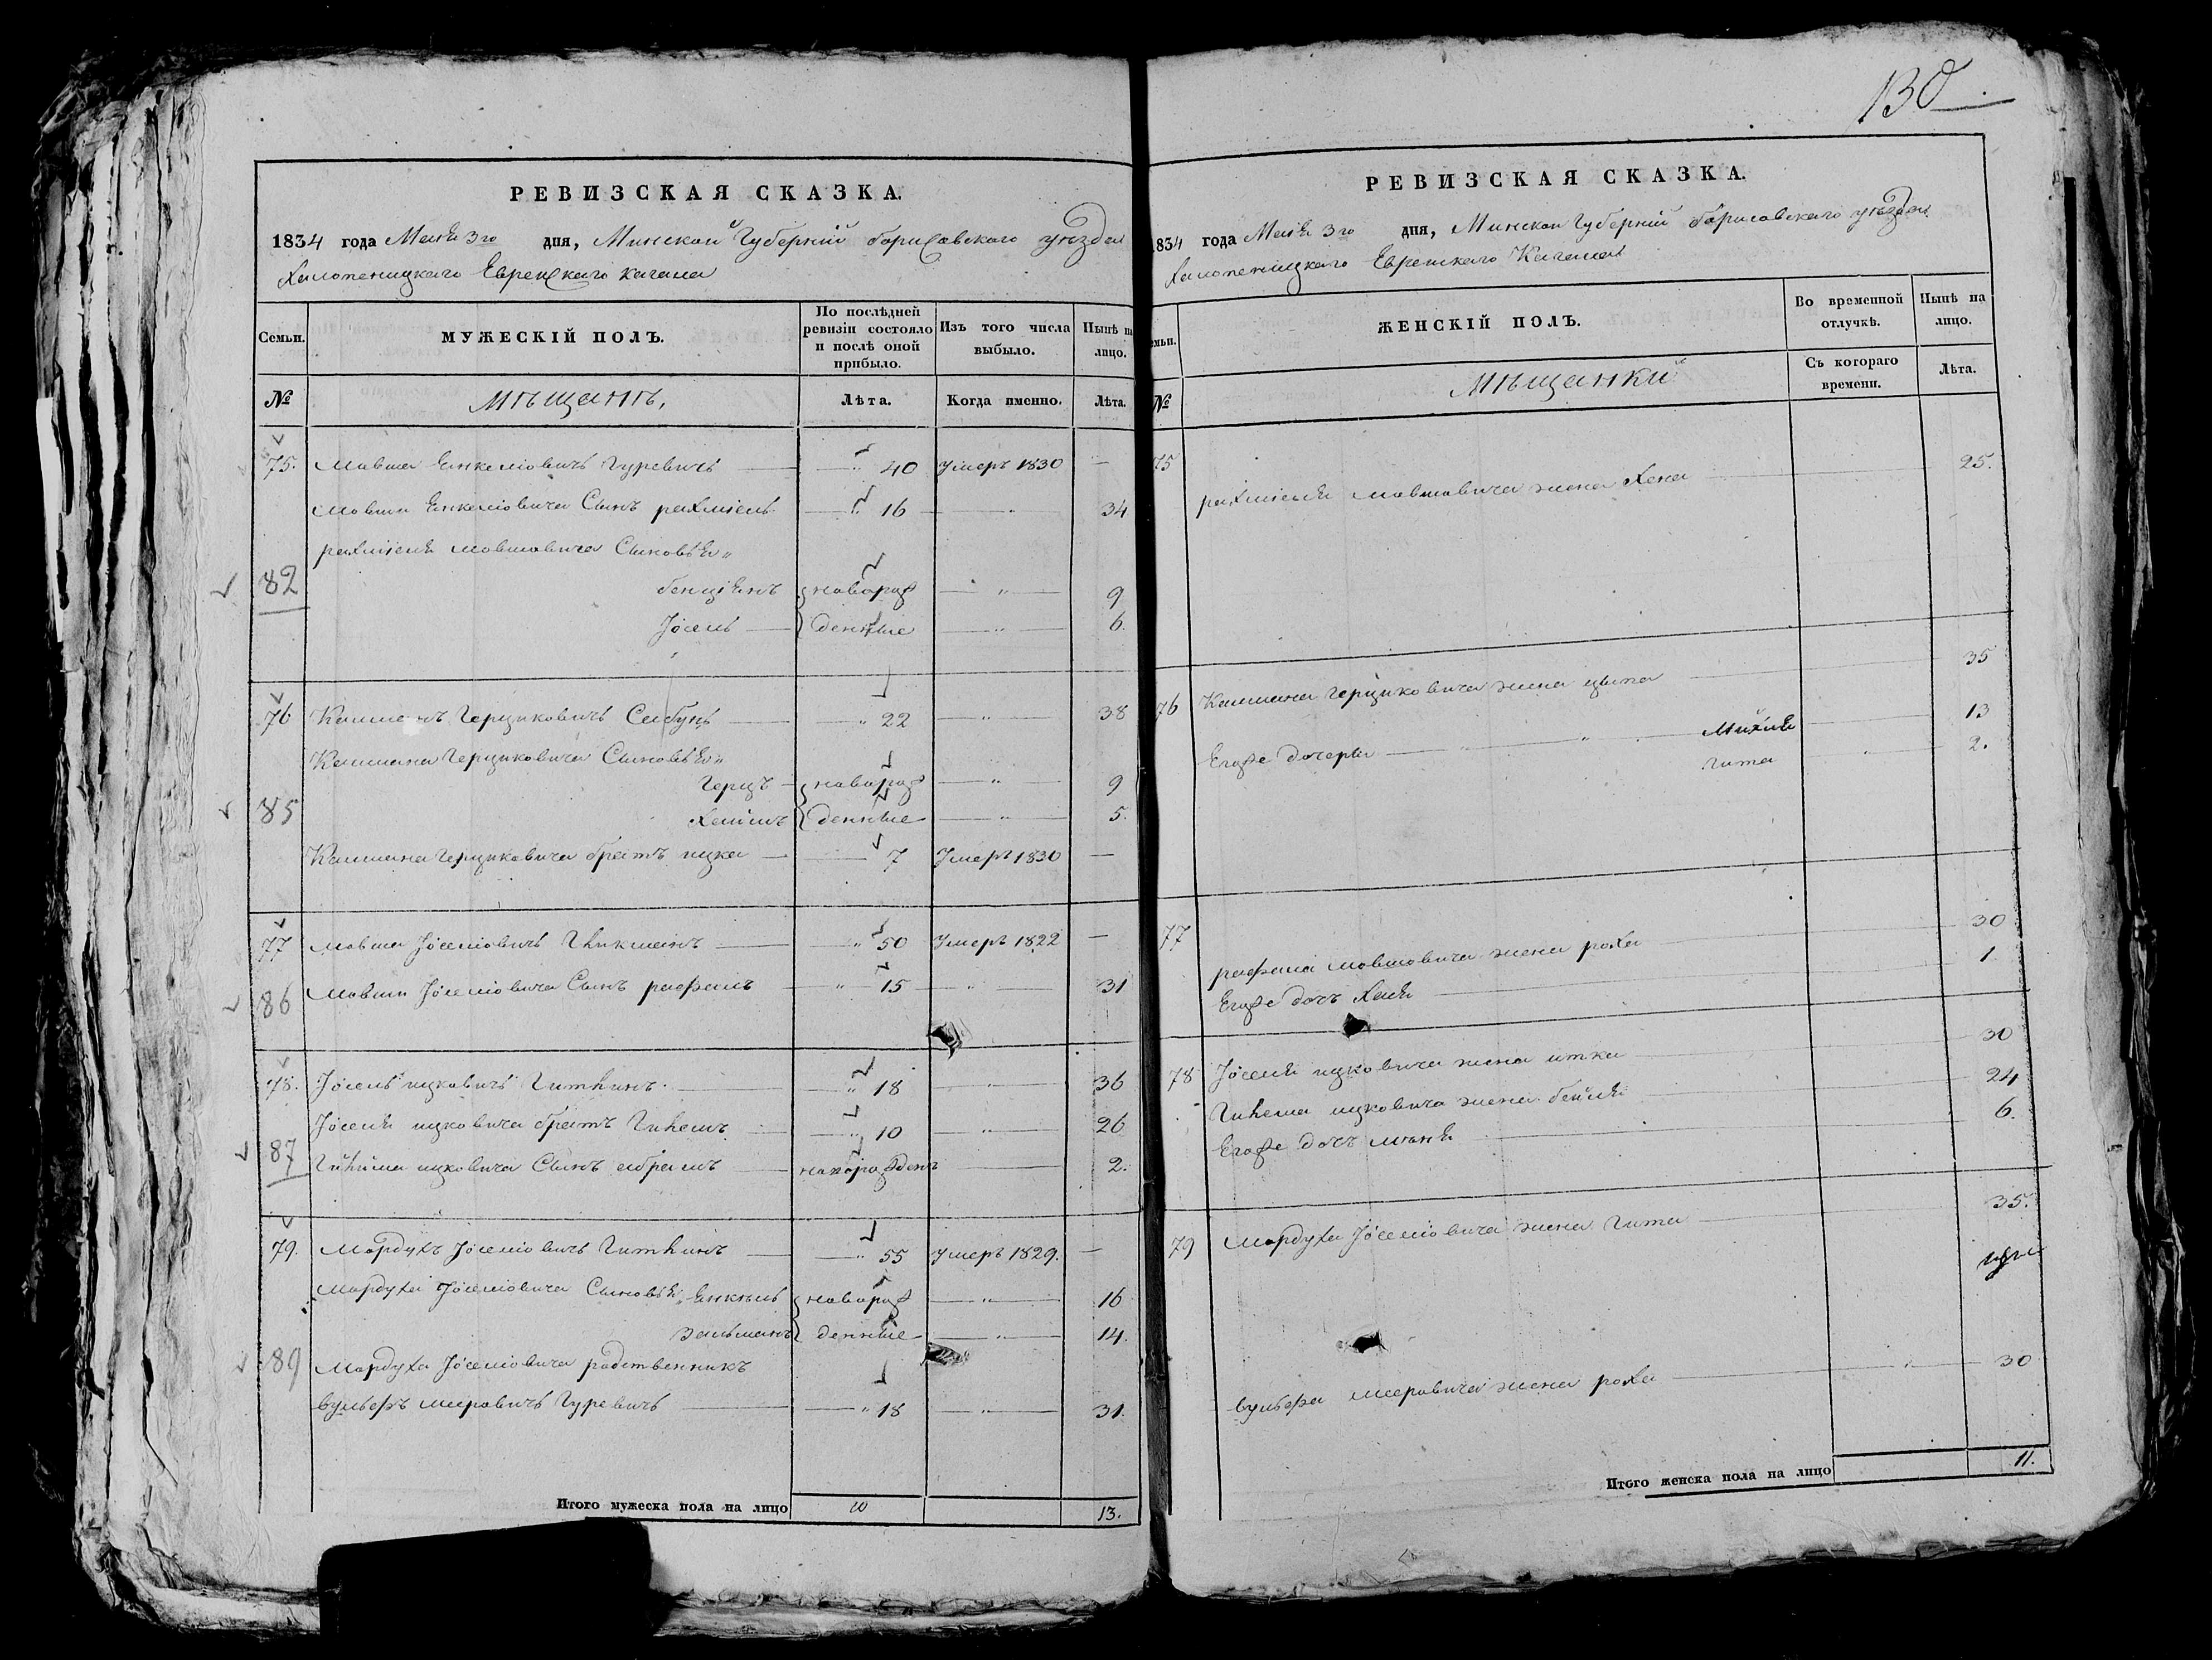 130
РЕВИЗСКАЯ СКАЗКА.
1834 года Маія 3го дня, Минской Губерніи борисовскаго уѣзда
Халопеницкаго Еврейскаго кагала
Семьи. МУЖЕСКІЙ ПОЛЪ. По послѣдней ревизіи состояло и послѣ оной прибыло. Изъ того числа выбыло. Нынѣ на лицо.
№ Мѣщанѣ, Лѣта. Когда именно. Лѣта.
75. Мовша Енкеліовичъ Гуревичъ — " 40 Умеръ 1830 —
Мовши Енкеліовича Сынъ рахміель — " 16 — " 34
рахміеля мовшовича Сыновья "
82
бенціянъ новорож — " — 9
Јосель — денные — " — 6.
76 Калманъ Герцыковичъ — " 22 " 38
Калмана Герцыковича Сыновья "
Герцъ — новорож — " — 9
85
Хаимъ денные — " — 5.
Калмана Герцыковича братъ ицка — 7 Умеръ 1830 —
77 мовша Јоселіовичъ — " 50 Умеръ 1822 —
86 Мовши Јоселіовича Сынъ рафалъ — " 15 — " — 31
78. Јосель ицковичъ Гиткинъ — " 18 — " — 36
Јоселя ицковича братъ — " 10 — " — 26
87
ицковича Сынъ абрамъ — новорожден — 2.
79. Мордухъ Јоселіовичъ Гиткинъ — " 55 Умеръ 1829. —
Мордуха Јоселіовича Сыновья " Енкель новорож — " — 16
залманъ денные — " — 14.
89 Мордуха Јоселіовича родственникъ
вульфъ мееровичъ Гуревичъ — " 18 — " — 31.
Итого мужеска пола на лицо 13.
РЕВИЗСКАЯ СКАЗКА.
1834 года Маія 3го дня, Минской Губерніи борисовскаго уѣзда
Халопеницкаго Еврейскаго Кагала
Семьи. ЖЕНСКІЙ ПОЛЪ. Во временной отлучкѣ. Нынѣ на лицо.
№ Мѣщанки Съ котораго времени. Лѣта.
75
рахміеля мовшовича жена Хена — 25.
76 Калмана Герцыковича жена — 35
Егоже дочеря — " " Михля — 13
Гита " 2.
77
рафала мовшовича жена роха — 30
Егоже дочъ Хая — 1
78 Јоселя ицковича жена итка — 30
ицковича жена бейля — 24
Егоже дочъ — 6.
79 Мордуха Јоселіовича жена Гита — 35.
вульфа мееровича жена роха — " — 30
Итого женска пола на лицо 11.